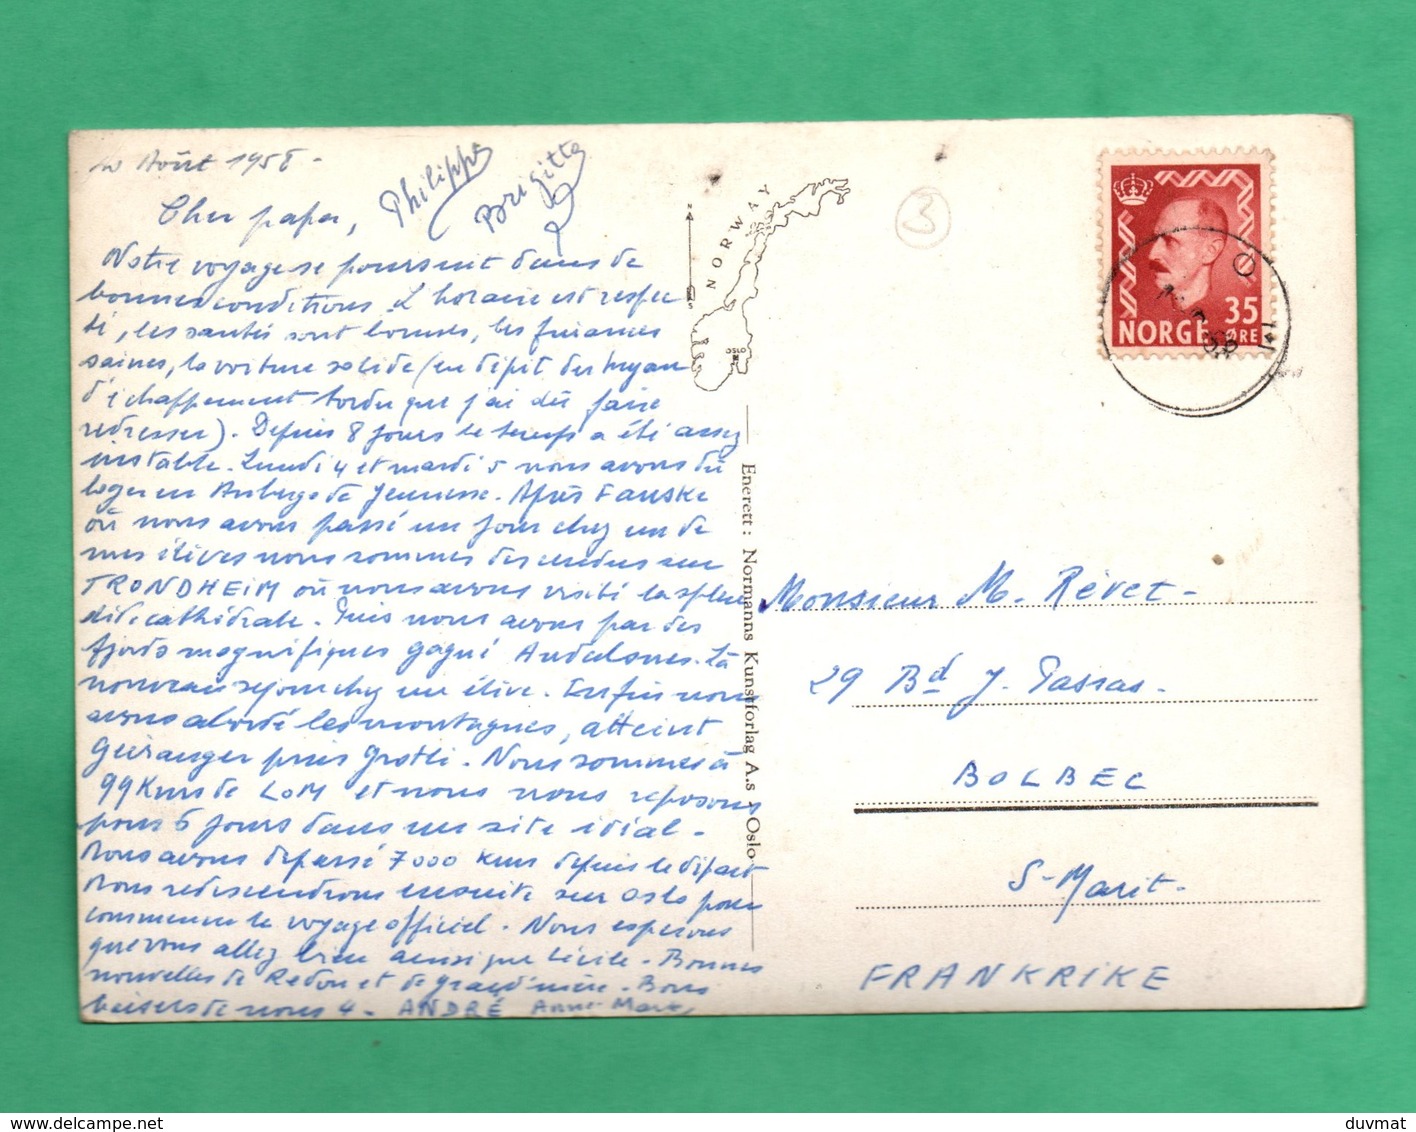 10 Août 1958 -
Cher papa,
Philippe
Brigitte
Notre voyage se poursuit dans de
bonnes conditions. L'horaire est respec-
té, les santés sont bonnes, les finances
saines, la voiture solide (en dépit du tuyau
d'échappement tordu que j'ai dû faire
redresser). Depuis 8 jours le temps a été assez
instable. Lundi 4 et mardi 5 nous avons dû
loger en Auberge de Jeunesse. Après FAUSKE
où nous avons passé un jour chez un de
mes élèves nous sommes descendus sur
TRONDHEIM où nous avons visité la splen-
dide cathédrale. Puis nous avons par des
fjords magnifiques gagné Andalsnes. Là
nouveau séjour chez un élève. Enfin nous
avons abordé les montagnes, atteint
Geiranger puis Grotli. Nous sommes à
99 Kms de LOM et nous nous reposons
pour 5 jours dans un site idéal.
Nous avons dépassé 7000 Kms depuis le départ
Nous redescendrons ensuite sur Oslo pour
commencer le voyage officiel. Nous espérons
que vous allez bien ainsi que Cécile. Bonnes
nouvelles de Redon et de grand'mère. Bons
baisers de nous 4. ANDRÉ Anne-Marie
N
S
NORWAY
OSLO
Enerett: Normanns Kunstforlag A.s - Oslo
3
35
NORGE ØRE
Monsieur M. Révet -
29 Bd J. Passas.
BOLBEC
S-Marit -
FRANKRIKE
delcampe.net
duvmat